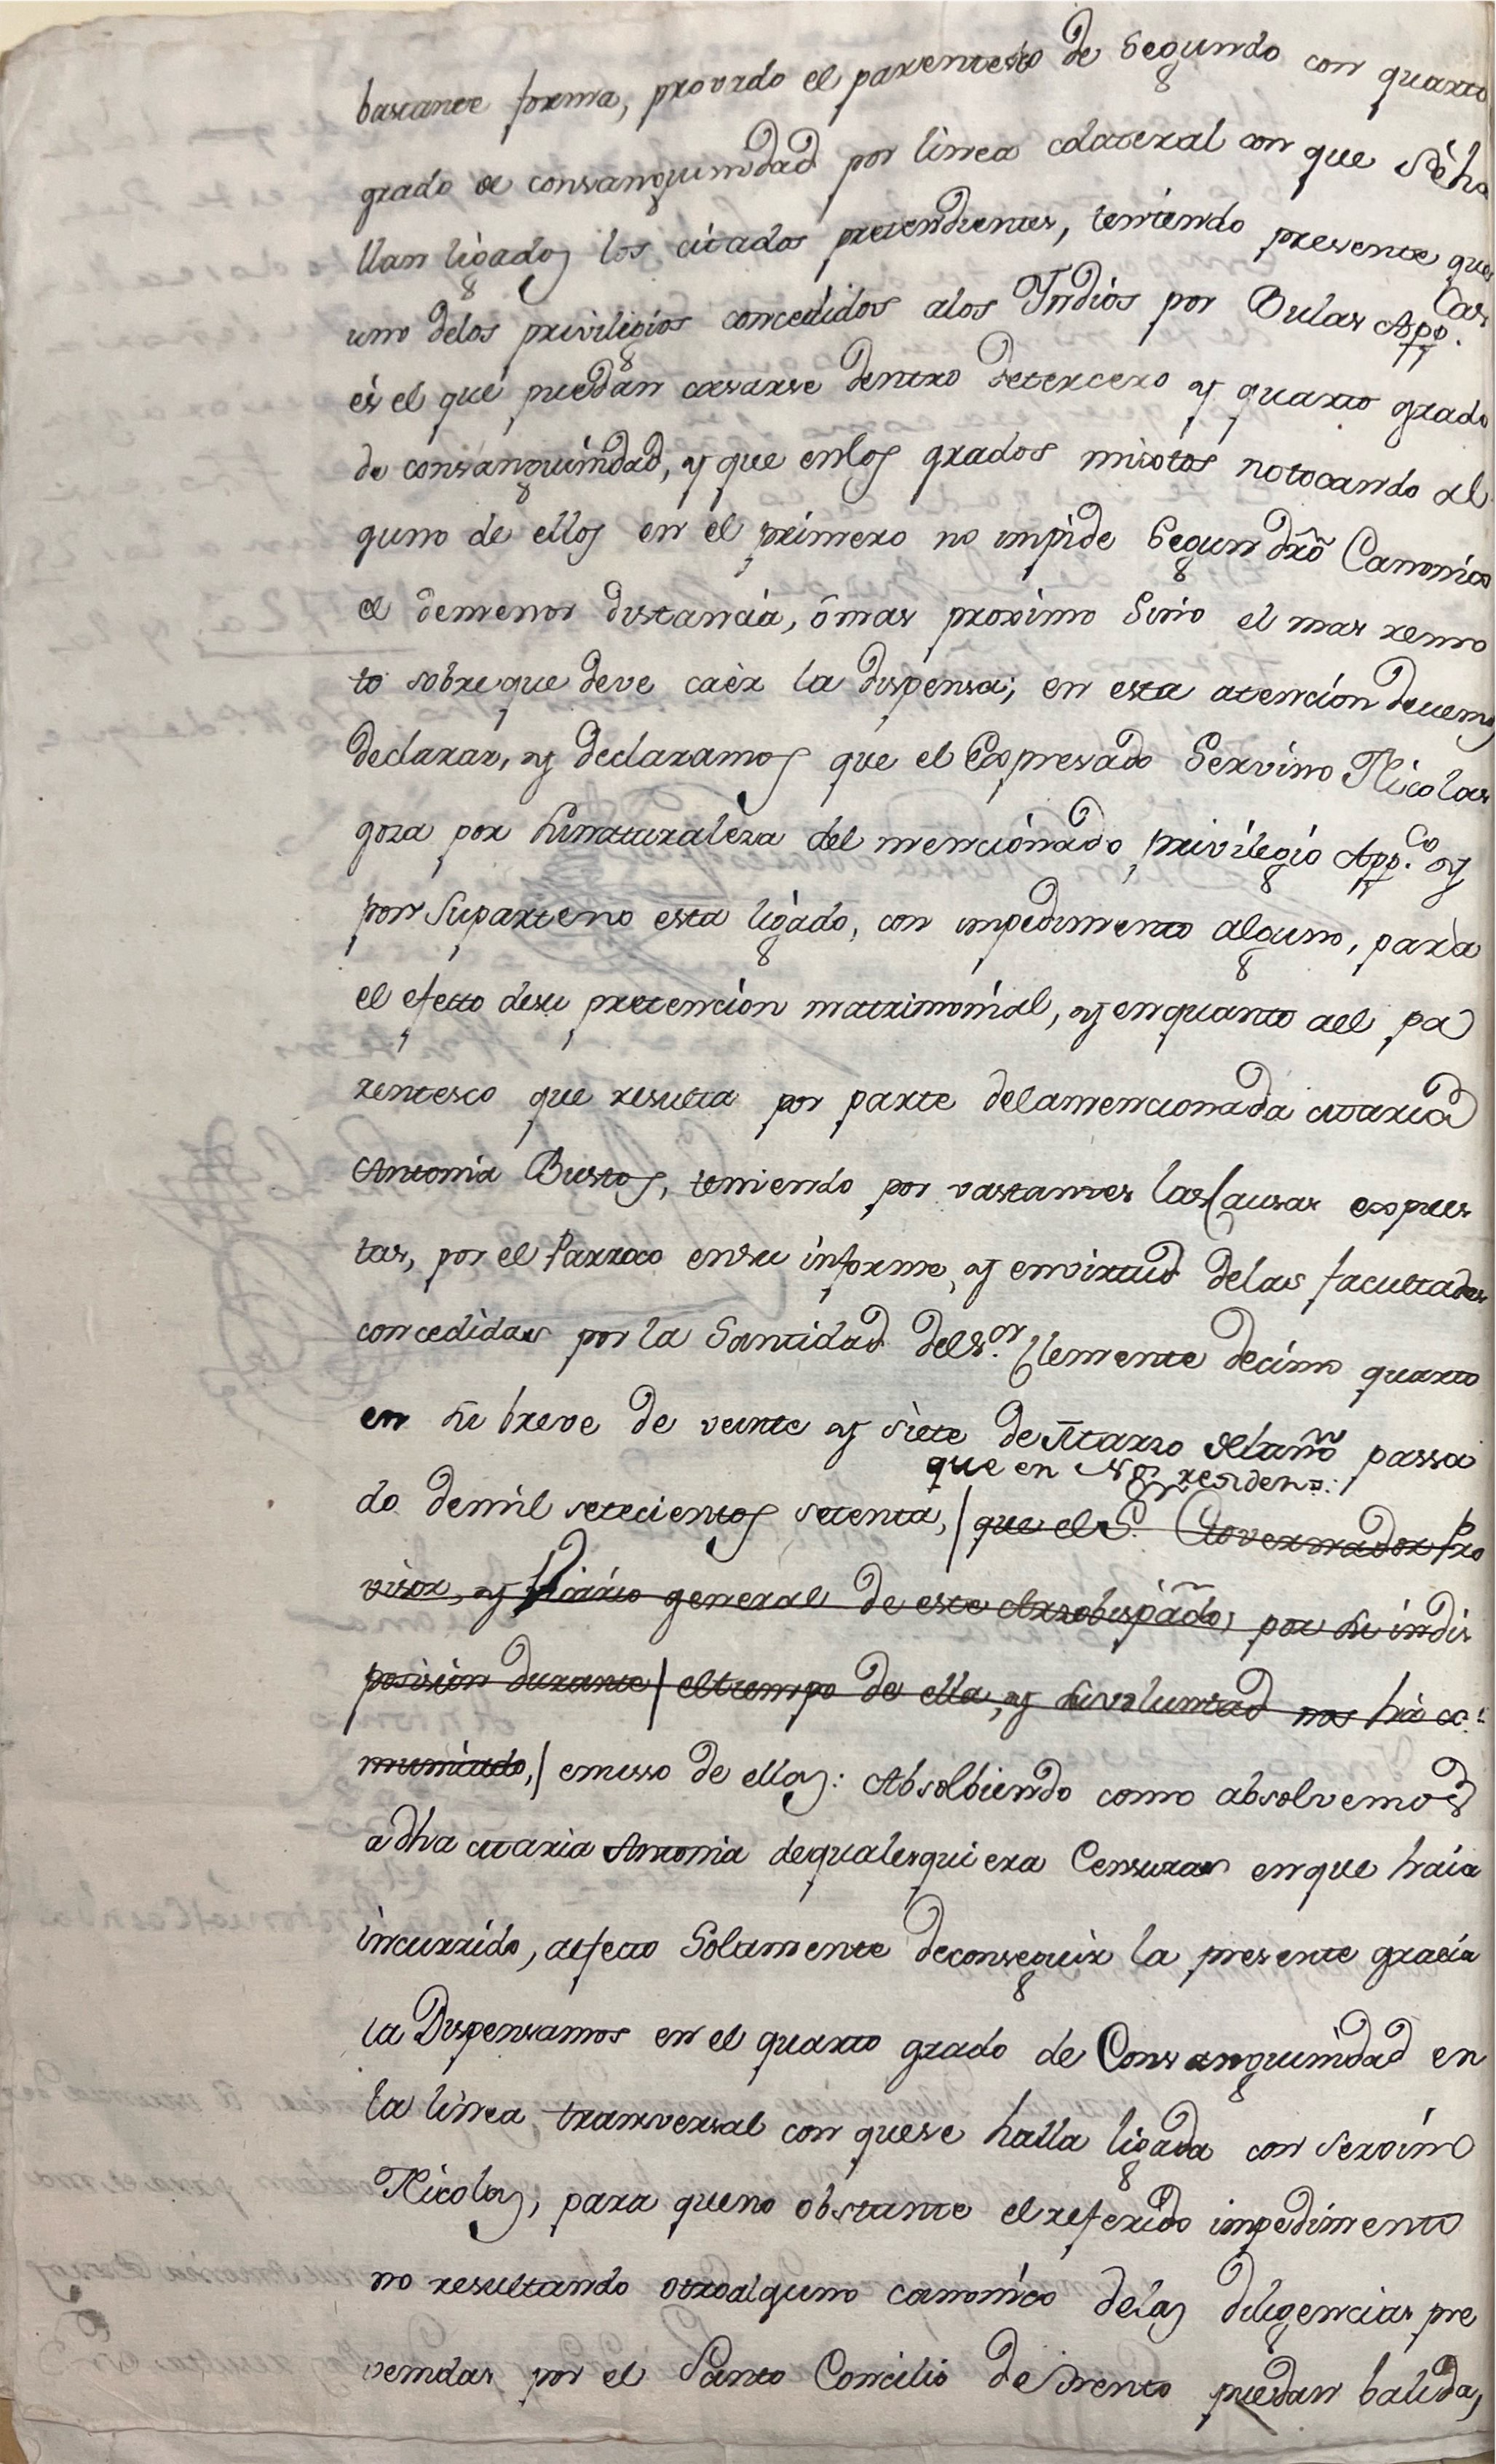 bastante forma, provado el parentesco de Segundo con quarto
grado de consanguinidad por linea colateral con que Sè ha
llan ligados los citados pretendientes, teniendo presente que
uno delos privilegios concedidos alos Yndios por Bulas App.cas
es el que puedan casarse dentro detercero y quarto grado
de consanguinidad, y que enlos grados mixtos notocando al
guno de ellos en el primero no impide Segun dr̃o Canonico
el demenor distancia, ò mas proximo Sino el mas remo
to sobreque deve caèr la dispensa; en esta atencion devemos
declarar, y declaramos que el Expresado Servino Nicolas
goza por sunaturaleza del mencionado privilegio App.co y
por Suparteno esta ligado, con impedimento alguno, para
el efecto desu pretencion matrimonial, y enquanto ael pa
rentesco que resulta por parte delamencionada Maria
Antonia Bustos, teniendo por vastantes las Causas expues
tas, por el Parroco ensu informe, y envirtud delas facultades
concedidas por la Santidad del S.or Clemente decimo quarto
en su breve de veinte y siete de Marzo del año passa
que en N. residen:
do demil setecientos setenta, / que el S. Governador Pro
visor, y Vicario general de este Arzobispãdo, por su indis
posision durante / eltiempo de ella, y suvoluntad nos hà co
municado, / emisso de ellas: Absolbiendo como absolvemos
a dha Maria Antonia dequalesquiera Censuras enque haia
incurrido, aefecto Solamente deconseguir la presente gracia
la Dispensamos en el quarto grado de Consanguinidad en
la linea transversal con quese halla ligada con Servino
Nicolas, para queno obstante el referido impedimento
no resultando otroalguno canonico delas diligencias pre
venidas por el Santo Concilio de Trento puedan balida,